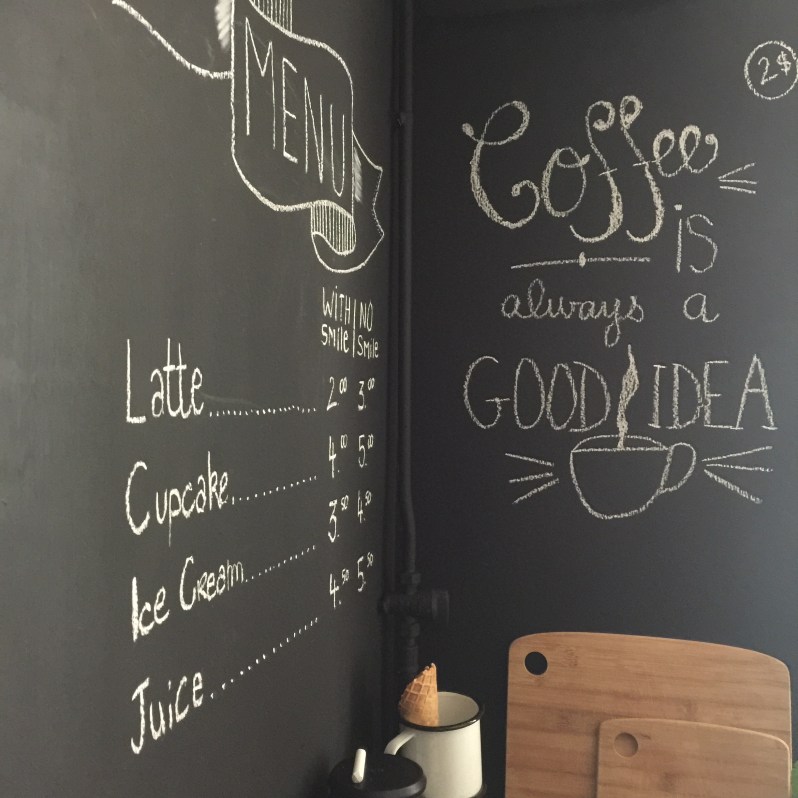 MENU
WiTH | NO
SMiLE | SMiLE
Latte........... 2.00 3.00
Cupcake........... 4.00 5.00
Ice Cream........... 3.50 4.50
Juice........... 4.50 5.50
2$
Coffee
iS
always a
GOOD IDEA